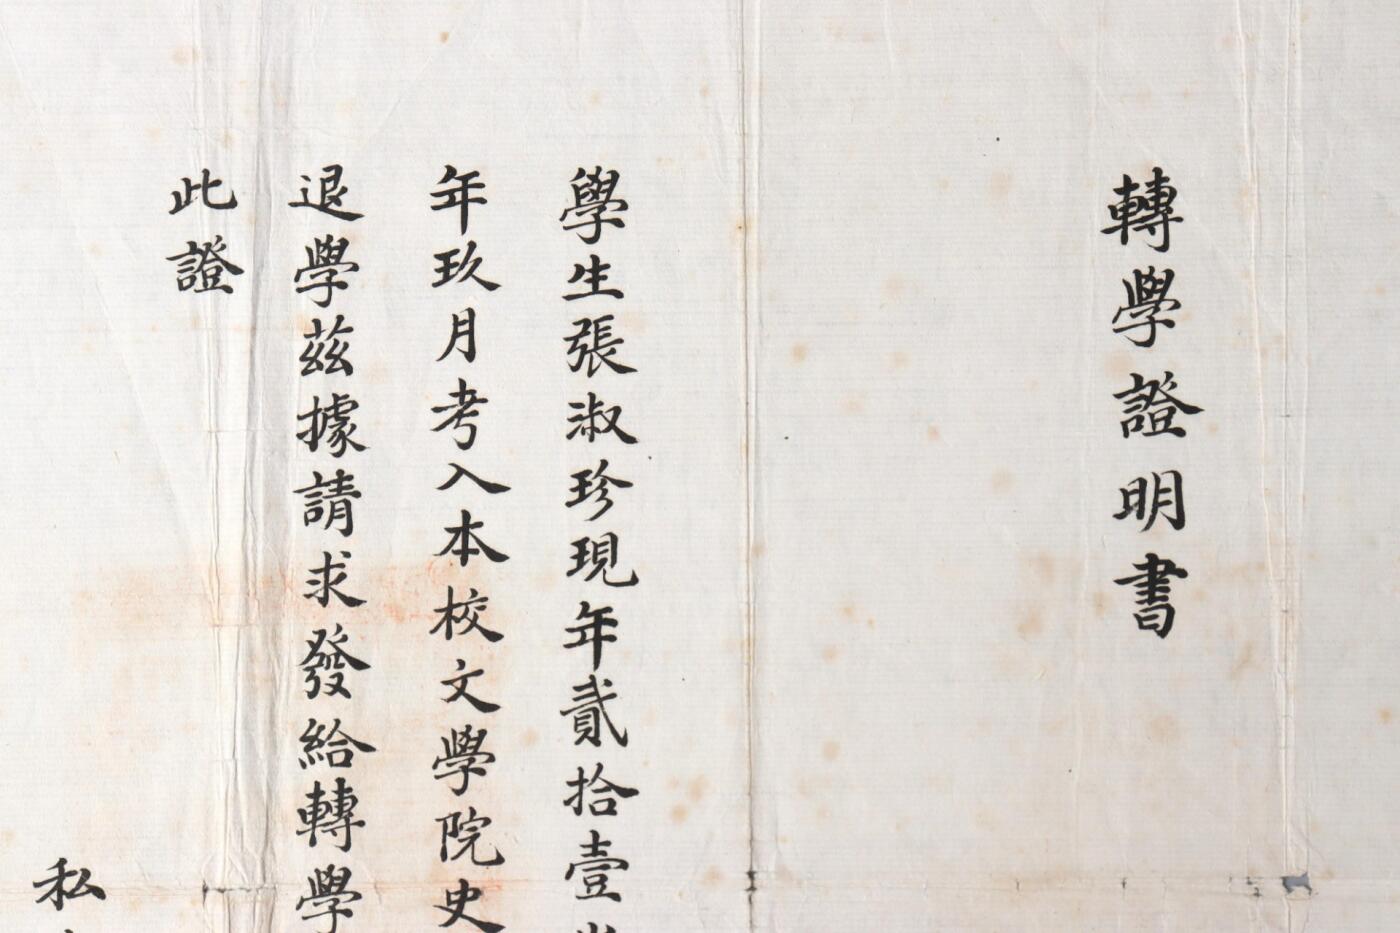 轉學證明書
學生張淑珍現年貳拾壹
年玖月考入本校文學院史
退學茲據請求發給轉學
此證
私